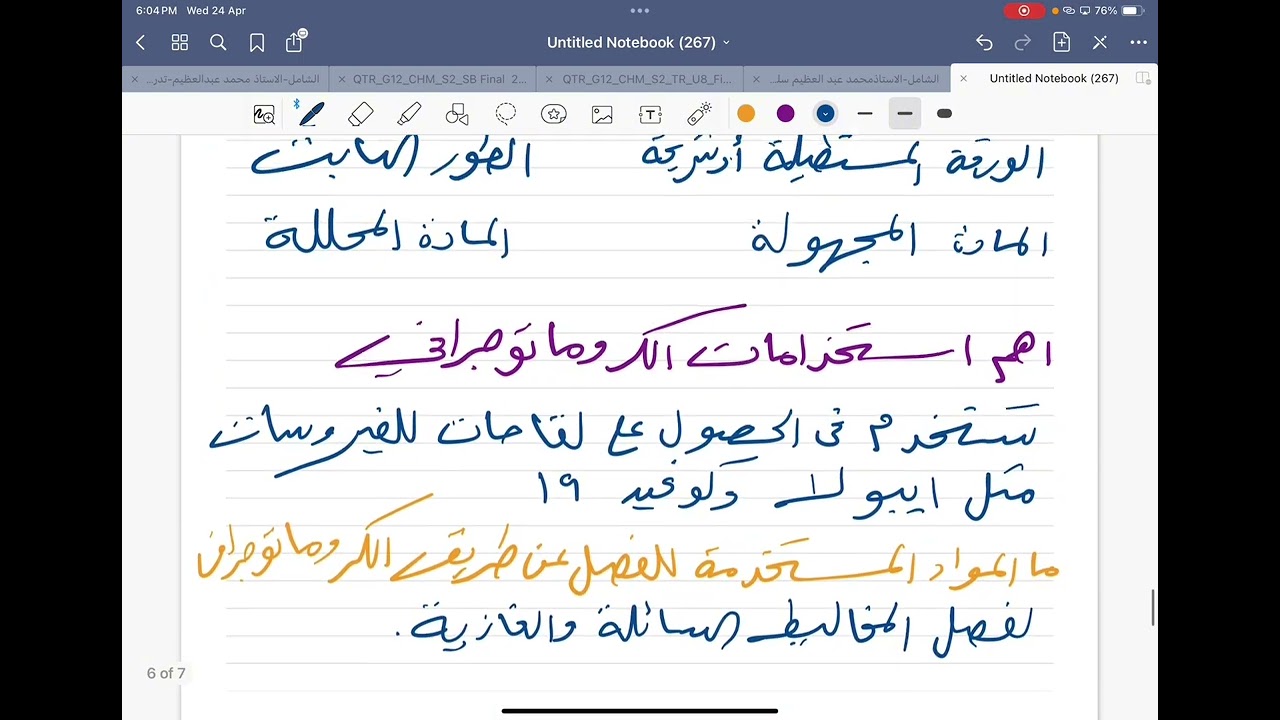 6:04 PM Wed 24 Apr
76%
Untitled Notebook (267)
الشامل-الاستاذ محمد عبدالعظيم-تدر...
QTR_G12_CHM_S2_SB Final 2...
QTR_G12_CHM_S2_TR_U8_Fi...
الشامل-الاستاذمحمد عبد العظيم سل...
Untitled Notebook (267)
الورقة المستطيلة أو شريحة الطور الثابت
المادة المجهولة المادة المحللة
اهم استخدامات الكروماتوجرافي
تستخدم في الحصول على لقاحات للفيروسات
مثل ايبولا وكوفيد ١٩
ما المواد المستخدمة للفصل عن طريق الكروماتوجرافى
لفصل المخاليط السائلة والغازية.
6 of 7